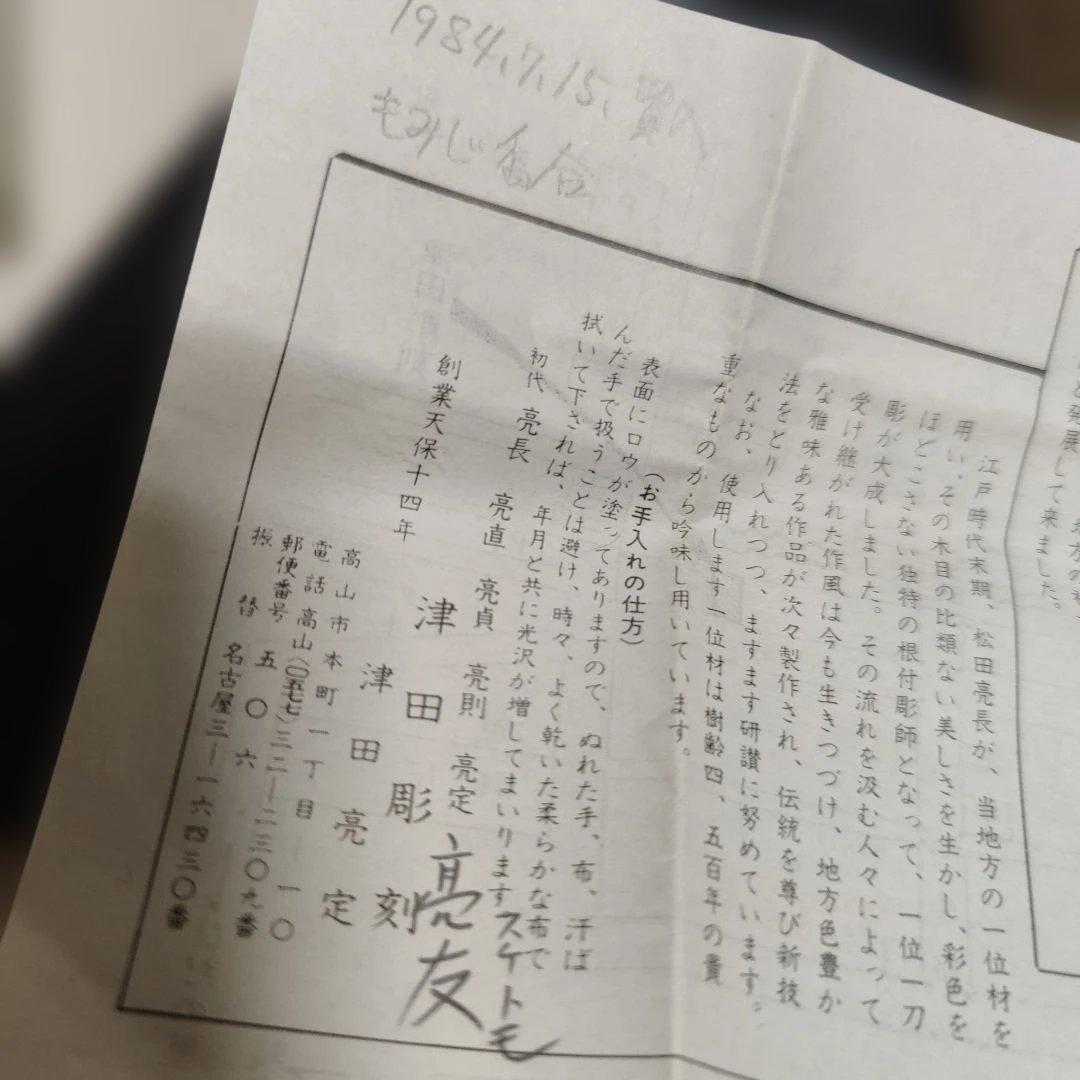 1984.7.15、買入
もみじ香合
と発展して来ました。
江戸時代末期、松田亮長が、当地方の一位材を
用い、その木目の比類ない美しさを生かし、彩色を
ほどこさない独特の根付彫師となって、一位一刀
彫が大成しました。その流れを汲む人々によって
受け継がれた作風は今も生きつづけ、地方色豊か
な雅味ある作品が次々製作され、伝統を尊び新技
法をとり入れつつ、ますます研讃に努めています。
なお、使用します一位材は樹齢四、五百年の貴
重なものから吟味し用いています。
(お手入れの仕方)
表面にロウが塗ってありますので、ぬれた手、布、汗ば
んだ手で扱うことは避け、時々、よく乾いた柔らかな布で
拭いて下されば、年月と共に光沢が増してまいります
初代 亮長 亮直 亮貞 亮則 亮定 亮友
スケトモ
創業天保十四年
津田彫刻
津田亮定
高山市本町一丁目一〇
電話高山(〇五七七)三二―二三〇九番
郵便番号 五〇六
振替 名古屋三―一六四三〇番